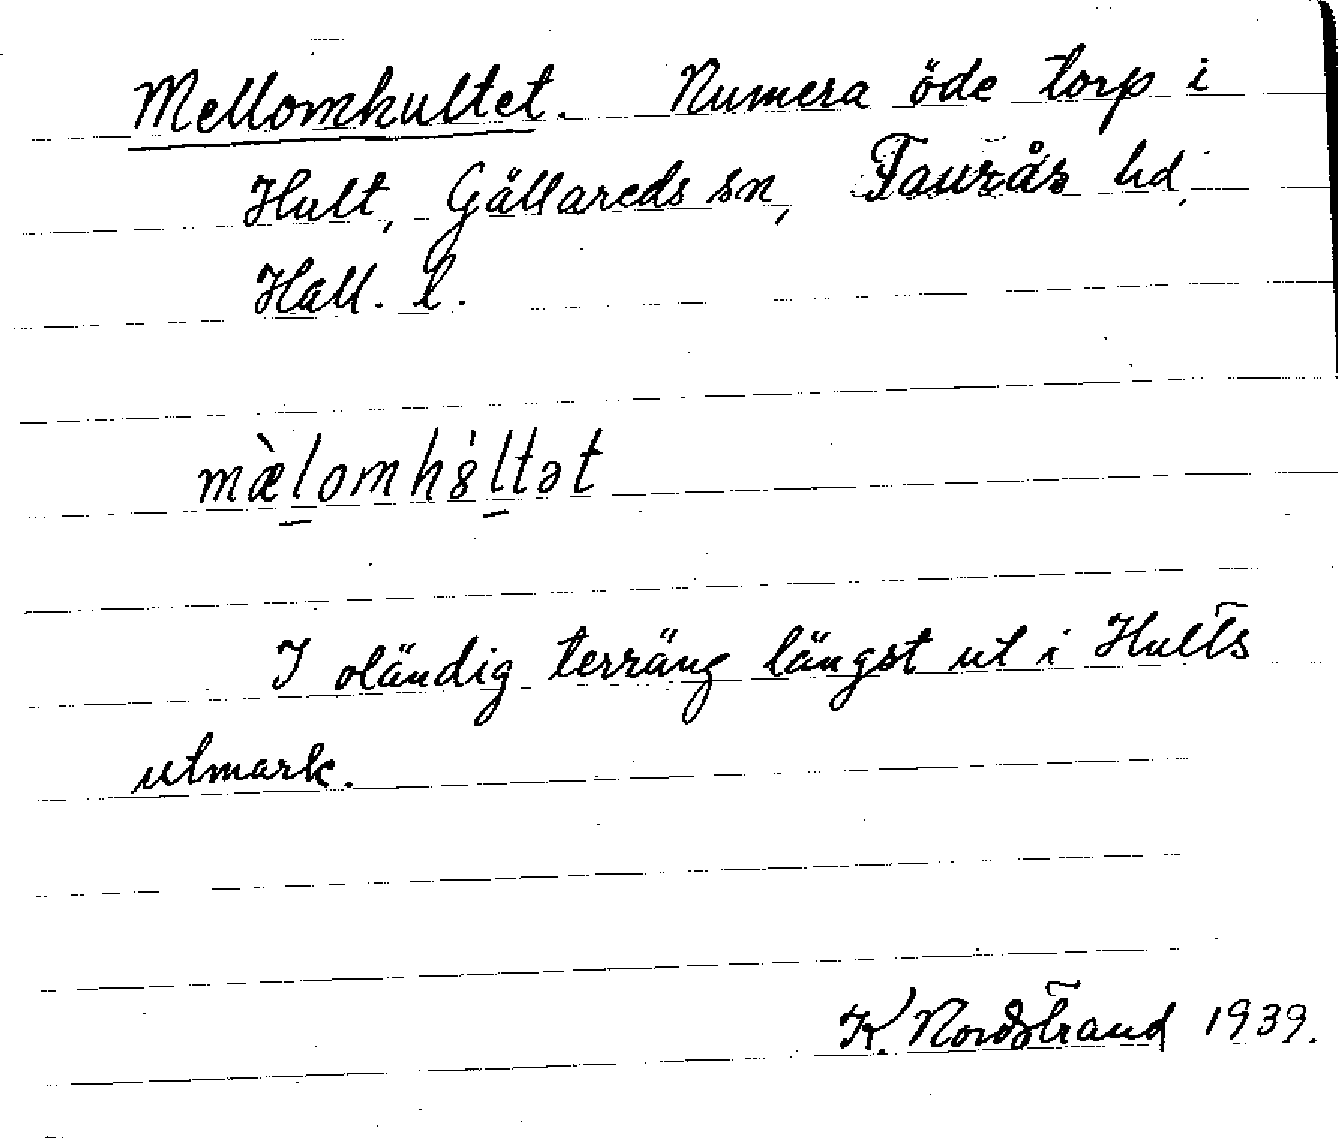 Mellomhultet. Numera öde torp i
Hult, Gällareds sn, Faurås hd,
Hall. l.
mæ̀l̠omh 8̍l̠tət
I oländig terräng längst ut i Hults
utmark.
K. Nordstrand 1939.